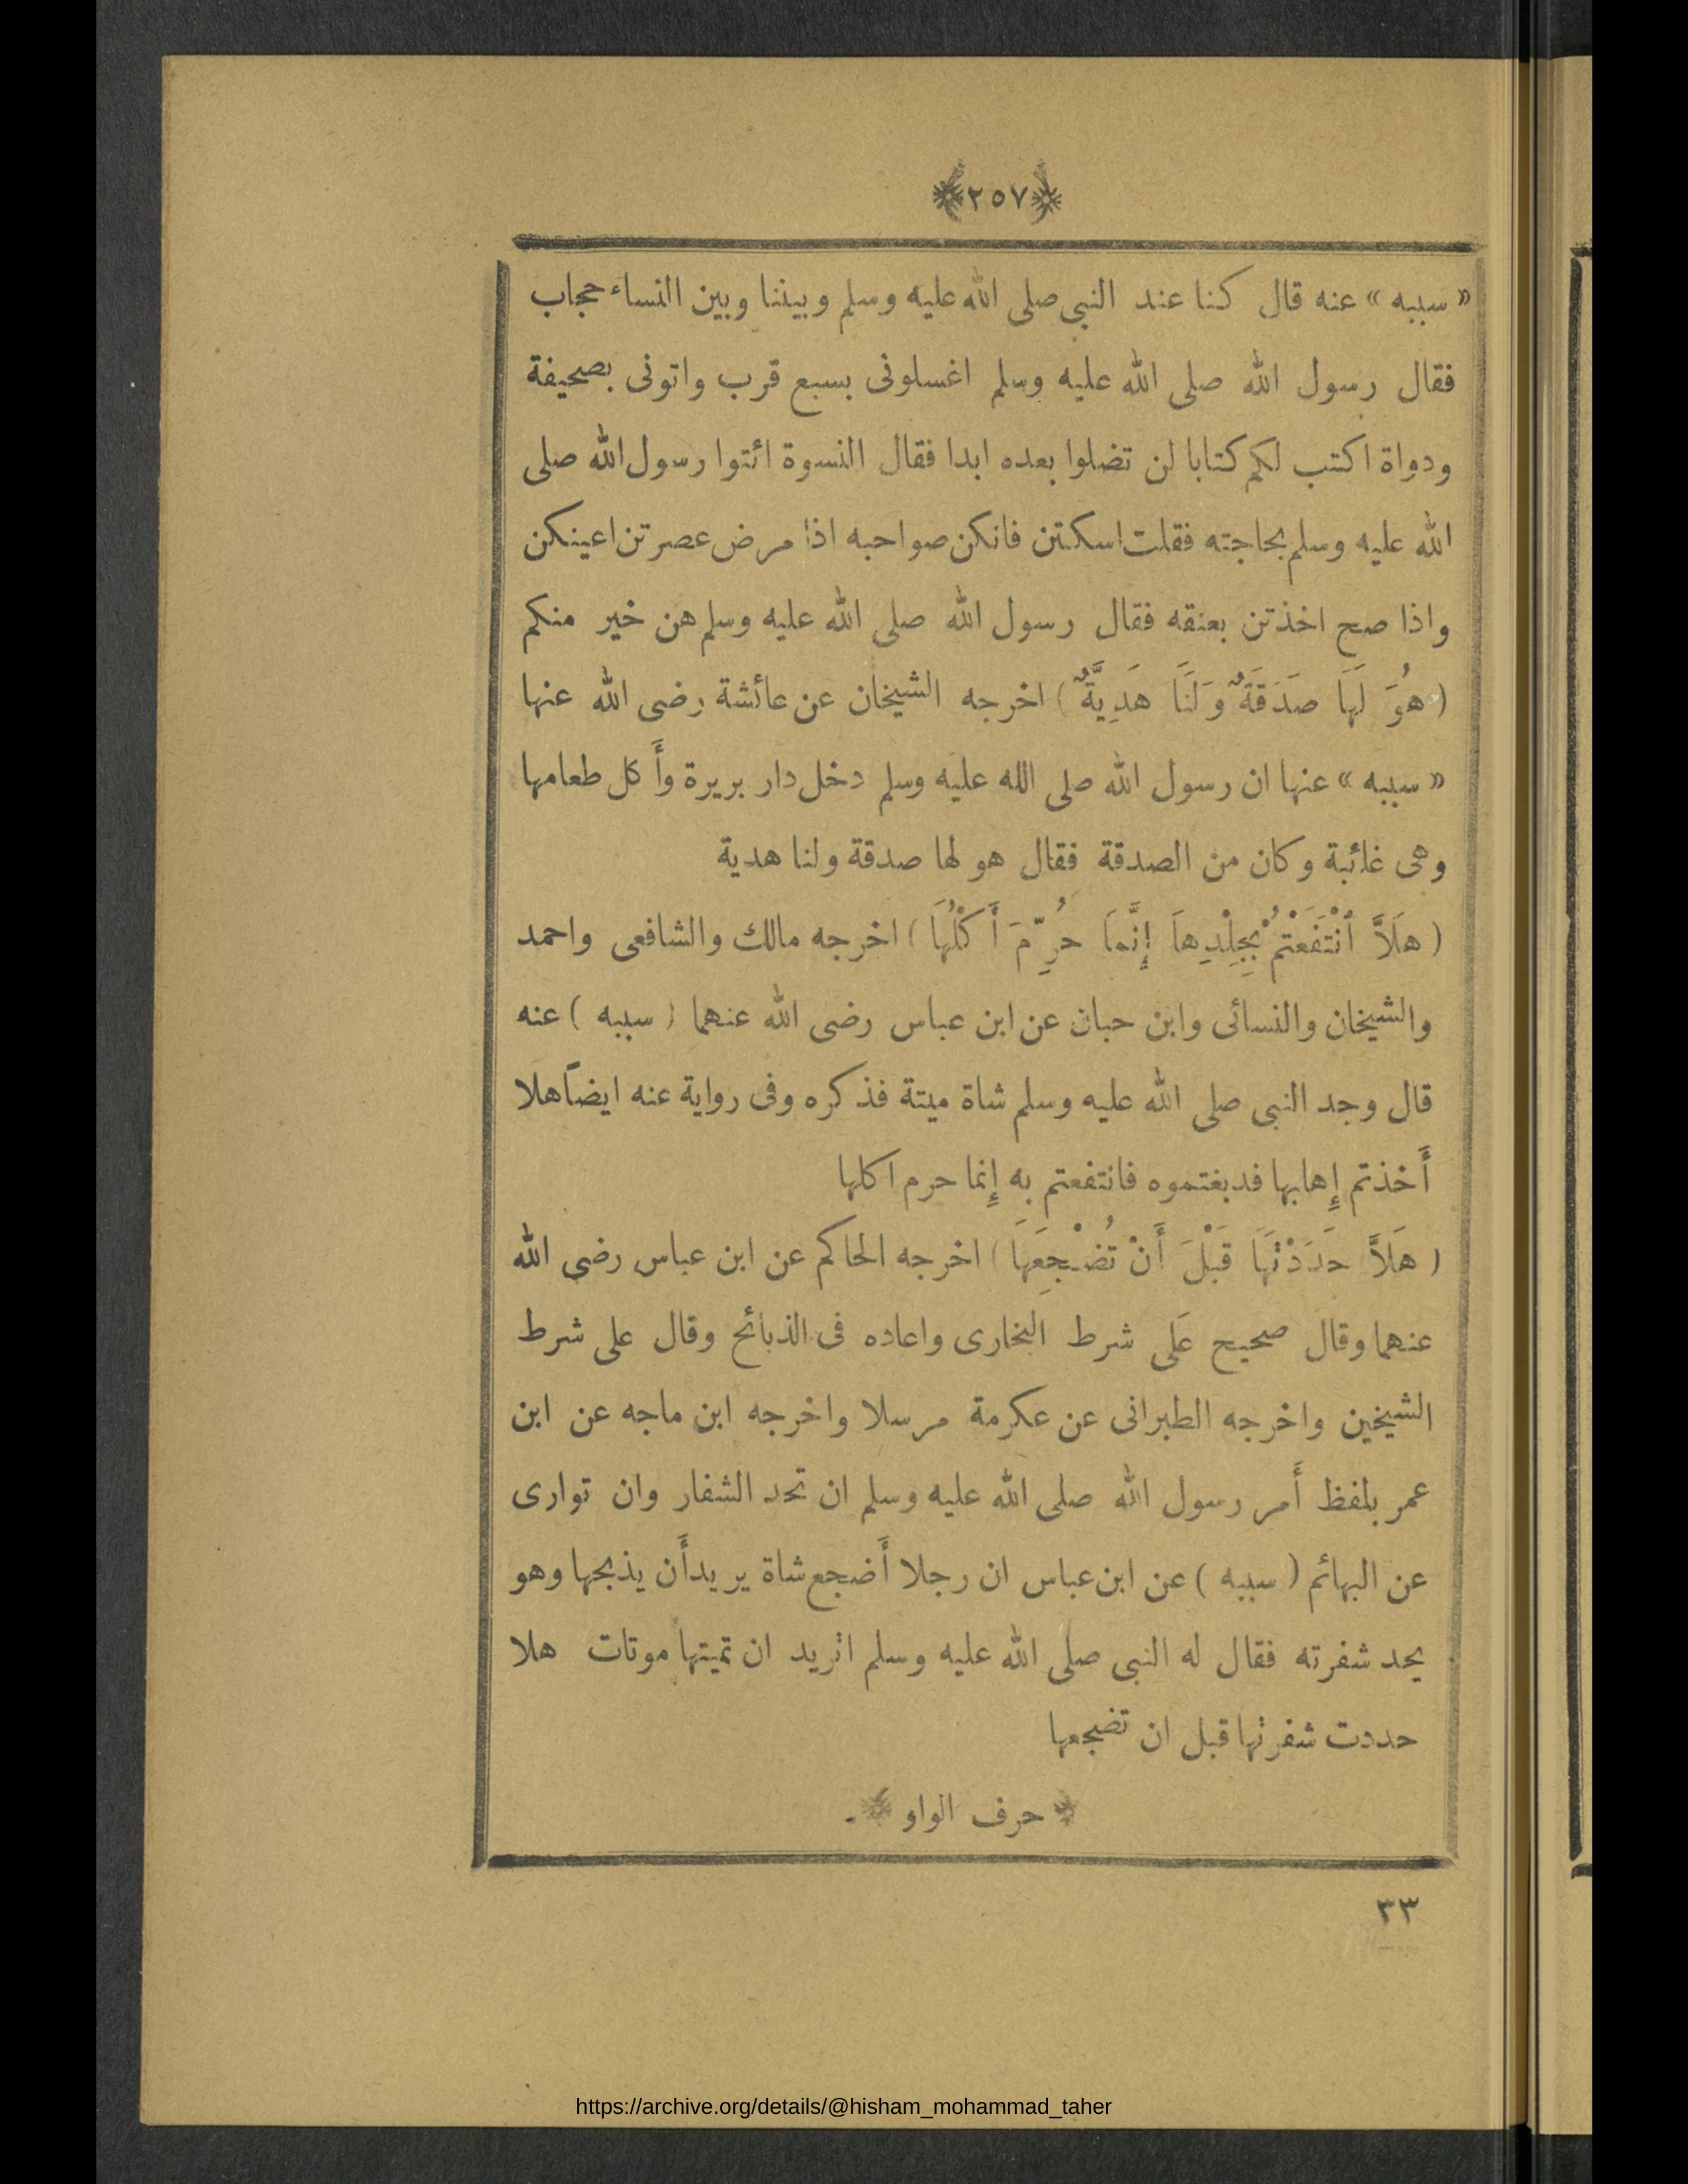 ٢٥٧
« سببه » عنه قال كنا عند النبى صلى الله عليه وسلم وبيننا وبين النساء حجاب
فقال رسول الله صلى الله عليه وسلم اغسلونى بسبع قرب واتونى بصحيفة
ودواة اكتب لكم كتابا لن تضلوا بعده ابدا فقال النسوة ائتوا رسول الله صلى
الله عليه وسلم بحاجته فقلت اسكتن فانكن صواحبه اذا مرض عصرتن اعينكن
واذا صح اخذتن بعنقه فقال رسول الله صلى الله عليه وسلم هن خير منكم
( هُوَ لَهَا صَدَقَةٌ وَلَنَا هَدِيَّةٌ ) اخرجه الشيخان عن عائشة رضى الله عنها
« سببه » عنها ان رسول الله صلى الله عليه وسلم دخل دار بريرة وأَكل طعامها
وهى غائبة وكان من الصدقة فقال هو لها صدقة ولنا هدية
( هَلاَّ ٱنْتَفَعْتُمْ بِجِلْدِهاَ إِنَّمَا حُرِّمَ أَكْلُهَا ) اخرجه مالك والشافعى واحمد
والشيخان والنسائى وابن حبان عن ابن عباس رضى الله عنهما ( سببه ) عنه
قال وجد النبى صلى الله عليه وسلم شاة ميتة فذكره وفى رواية عنه ايضاً هلا
أَخذتم إِهابها فدبغتموه فانتفعتم به إِنما حرم اكلها
( هَلاَّ حَدَدْتَهَا قَبْلَ أَنْ تُضْجِعَهَا ) اخرجه الحاكم عن ابن عباس رضى الله
عنهما وقال صحيح عَلى شرط البخارى واعاده فى الذبائح وقال على شرط
الشيخين واخرجه الطبرانى عن عكرمة مرسلا واخرجه ابن ماجه عن ابن
عمر بلفظ أَمر رسول الله صلى الله عليه وسلم ان تحد الشفار وان توارى
عن البهائم ( سببه ) عن ابن عباس ان رجلا أَضجع شاة يريد أَن يذبحها وهو
يحد شفرته فقال له النبى صلى الله عليه وسلم اتريد ان تميتها موتات هلا
حددت شفرتها قبل ان تضجعها
حرف الواو
٣٣
https://archive.org/details/@hisham_mohammad_taher